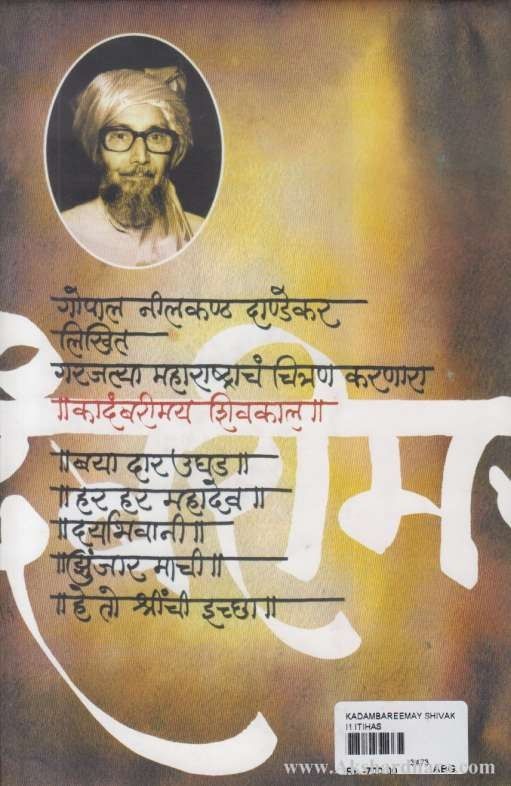 गोपाल नीलकण्ठ दाण्डेकर
लिखित
गरजत्या महाराष्ट्राचं चित्रण करणारा
॥कादंबरीमय शिवकाल॥
॥बया दार उघड॥
॥हर हर महादेव॥
॥दर्याभवानी॥
॥झुंजार माची॥
॥हे तो श्रींची इच्छा॥
KADAMBAREEMAY SHIVAK
I1 ITIHAS
3473
ABG
www.Akshardhara.com